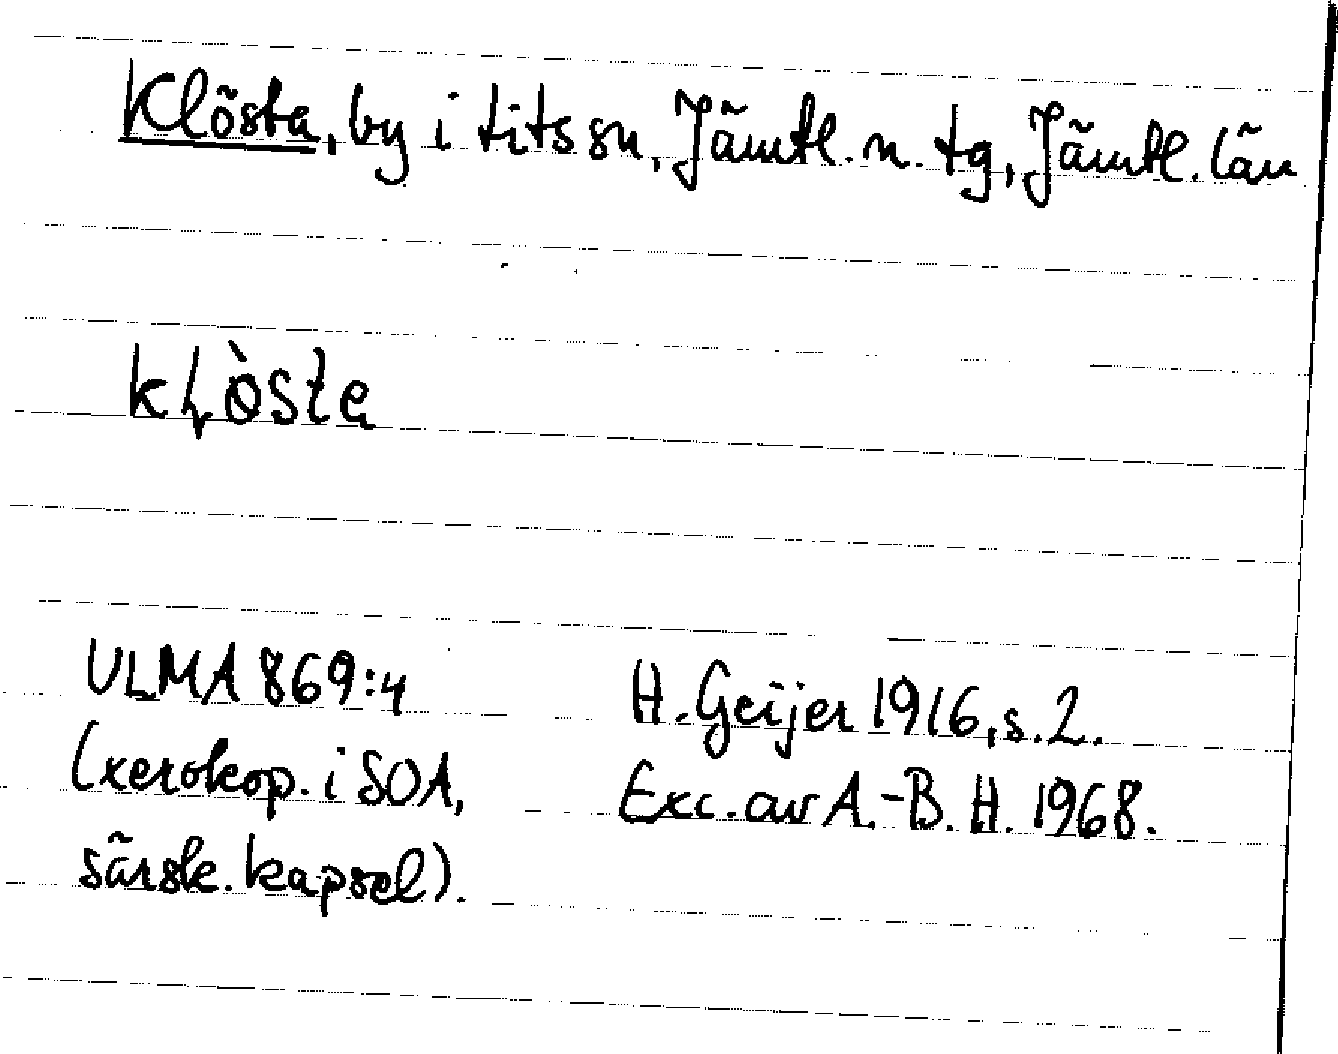 Klösta, by i Lits sn, Jämtl. n. tg, Jämtl. län
ULMA 869:4
(xerokop. i SOA,
särsk. kapsel).
H. Geijer 1916, s. 2.
Exc. av A.-B. H. 1968.